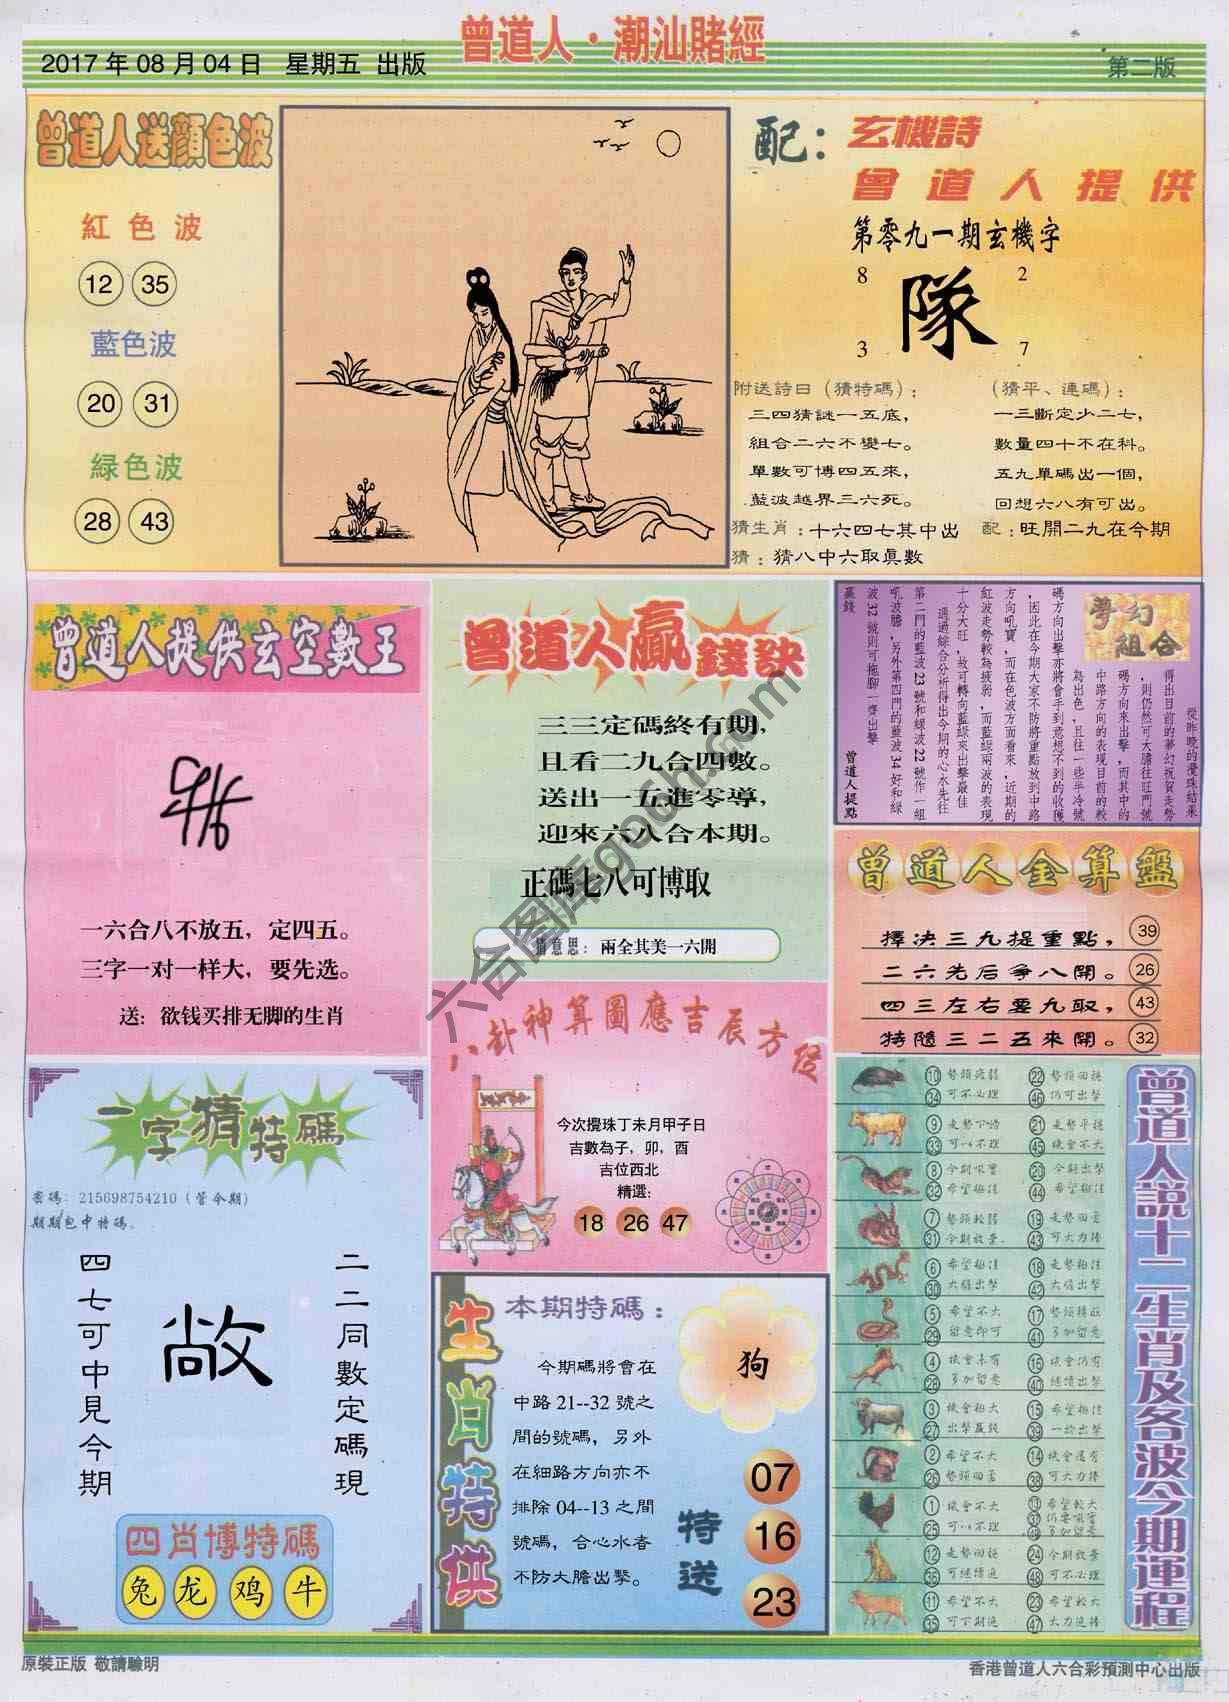 曾道人·潮汕賭經
2017 年 08 月 04 日 星期五 出版
第二版
曾道人送顏色波
紅色波
12 35
藍色波
20 31
緑色波
28 43
配：
玄機詩
曾道人提供
第零九一期玄機字
8 2
隊
3 7
附送詩曰（猜特碼）：
三四猜謎一五底，
組合二六不變七。
單數可博四五來，
藍波越界三六死。
（猜平、連碼）：
一三斷定少二七，
數量四十不在科。
五九單碼出一個，
回想六八有可出。
猜生肖：十六四七其中出
配：旺開二九在今期
猜：猜八中六取真數
曾道人提供玄空數王
一六合八不放五，定四五。
三字一对一样大，要先选。
送：欲钱买排无脚的生肖
曾道人贏錢訣
三三定碼終有期，
且看二九合四數。
送出一五進零導，
迎來六八合本期。
正碼七八可博取
猜意思：兩全其美一六開
夢幻組合
從昨晚的攪珠結果
得出目前的夢幻祝賀走勢
，則仍然可大膽往旺門號
碼方向來出擊，而其中的
中路方向的表現目前的較
為出色，且往一些半冷號
碼方向出擊亦將會手到意想不到的收獲
，因此在今期大家不防將重點放到中路
方向吼寶，而在色波方面看來，近期的
紅波走勢較為疲弱，而藍綠兩波的表現
十分大旺，故可轉向藍綠來出擊最佳
通過綜合分析得出今期的心水先往
第二門的藍波 23 號和綠波 22 號作一組
吼波膽，另外第四門的藍波 34 好和綠
波 32 號則可拖腳一齊出擊
贏錢
曾道人提點
曾道人金算盤
擇決三九提重點， 39
二六先后爭八開。 26
四三左右要九取， 43
特隨三二五來開。 32
八卦神算圖應吉辰方位
今次攪珠丁未月甲子日
吉數為子，卯，酉
吉位西北
精選：
18 26 47
一字猜特碼
密碼：215698754210（管今期）
期期包中特碼。
二二同數定碼現
敞
四七可中見今期
四肖博特碼
兔 龙 鸡 牛
生肖特供
本期特碼：
今期碼將會在
中路 21--32 號之
間的號碼，另外
在細路方向亦不
排除 04--13 之間
號碼，合心水者
不防大膽出擊。
狗
特送
07
16
23
曾道人說十二生肖及各波今期運程
10 勢頭疲弱 22 勢頭回穩
34 可不必理 46 仍可出擊
9 走勢不暢 21 走勢平穩
33 可以不理 45 機會不大
8 今期吼寶 20 今期出擊
32 希望極佳 44 希望極佳
7 勢頭較弱 19 走勢回落
31 今期放棄 43 可大力捧
6 希望極佳 18 走勢極佳
30 大膽出擊 42 大膽出擊
5 希望不大 17 勢頭轉旺
29 留意即可 41 多加留意
4 機會未有 16 機會仍有
28 多加留意 40 繼續出擊
3 機會極大 15 希望極佳
27 出擊贏錢 39 一於出擊
2 希望不大 14 機會還有
26 勢頭回落 38 可大力捧
1 機會不大 13 希望較大
25 可以不理 37 仍要吼實
49 多加留意
12 走勢回穩 24 今期放棄
36 可繼續追 48 可不必理
11 希望不大 23 希望較大
35 可下期追 47 大力追捧
原裝正版 敬請驗明
香港曾道人六合彩預測中心出版
六合图库gocn.com